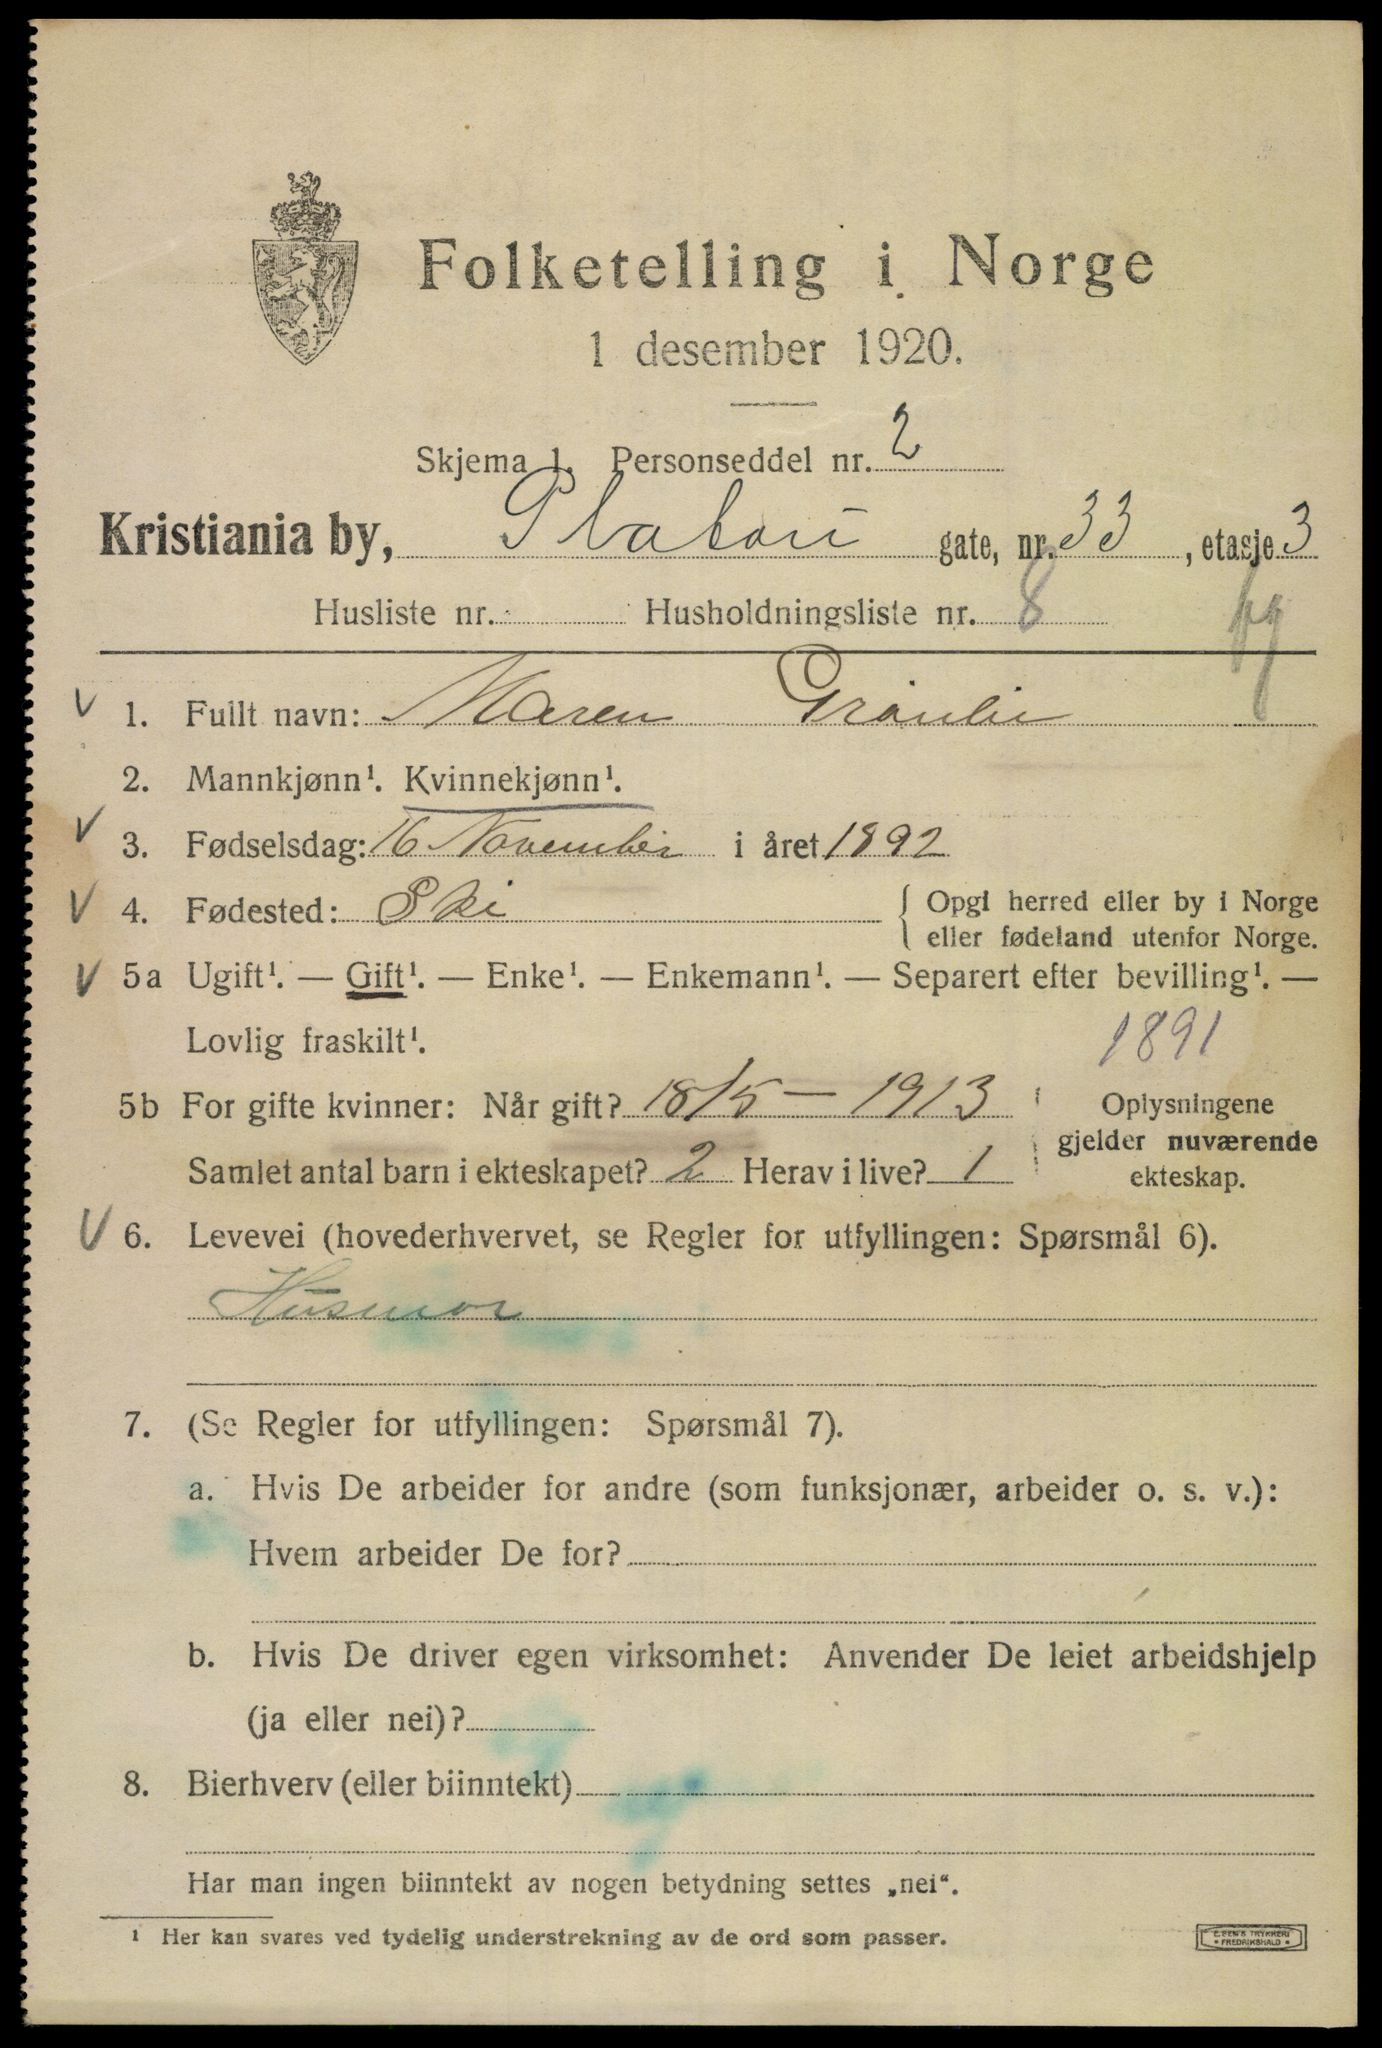 Folketelling i Norge
1 desember 1920.
Skjema 1. Personseddel nr. 2
Kristiania by, Platou gate, nr. 33, etasje 3
Husliste nr. Husholdningsliste nr. 8
1. Fullt navn: Maren Grönlie
2. Mannkjønn¹. Kvinnekjønn¹.
3. Fødselsdag: 16 November i året 1892
4. Fødested: Ski { Opgi herred eller by i Norge
eller fødeland utenfor Norge.
5a Ugift¹. — Gift¹. — Enke¹. — Enkemann¹. — Separert efter bevilling¹. —
Lovlig fraskilt¹.
1891
5b For gifte kvinner: Når gift? 18/5 — 1913
Samlet antal barn i ekteskapet? 2 Herav i live? 1
Oplysningene
gjelder nuværende
ekteskap.
6. Levevei (hovederhvervet, se Regler for utfyllingen: Spørsmål 6).
Husmor
7. (Se Regler for utfyllingen: Spørsmål 7).
a. Hvis De arbeider for andre (som funksjonær, arbeider o. s. v.):
Hvem arbeider De for?
b. Hvis De driver egen virksomhet: Anvender De leiet arbeidshjelp
(ja eller nei)?
8. Bierhverv (eller biinntekt)
Har man ingen biinntekt av nogen betydning settes „nei“.
¹ Her kan svares ved tydelig understrekning av de ord som passer.
TRYKKERI
FREDRIKSHALD